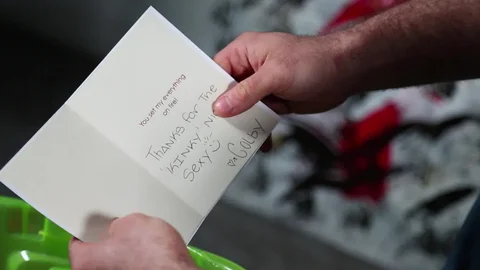 You set my everything
on fire!
THANKS FOR THE
'KINKY' 'N
SEXY
♡ COLBY